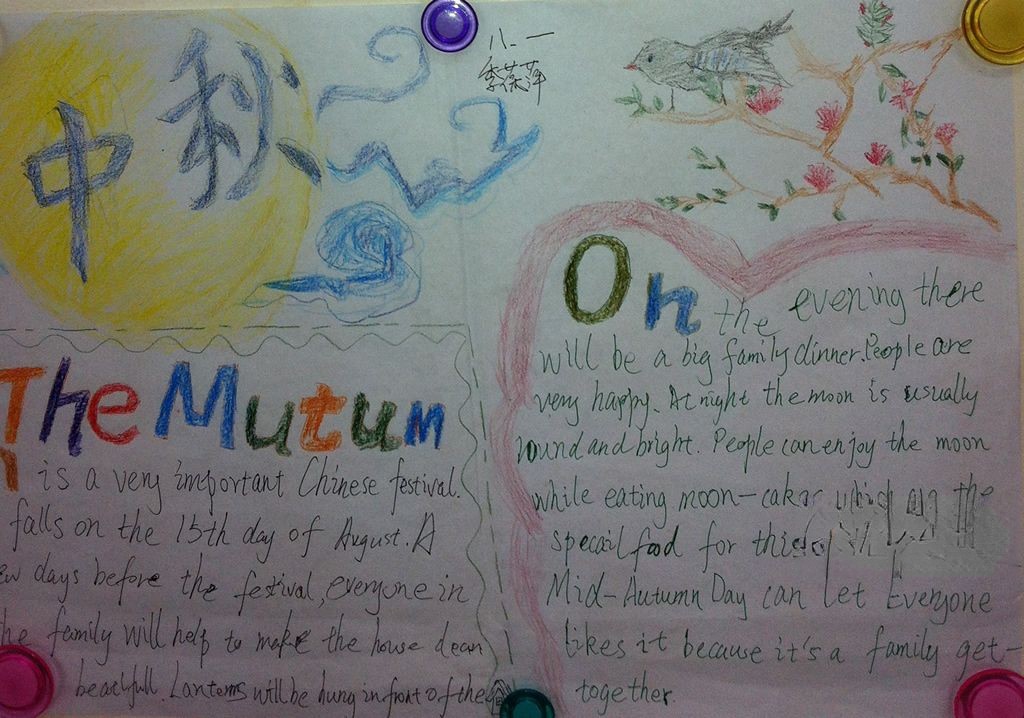 中秋
八.一
The Mutum
is a very important Chinese festival.
falls on the 15th day of August. A
days before the festival, everyone in
the family will help to make the house clean
beacitfull. Lantems will be hung in front of the
On the evening there
will be a big family dinner. People are
very happy. At night the moon is usually
round and bright. People can enjoy the moon
while eating moon-cakes which are the
specail food for this
Mid-Autumn Day can let Everyone
likes it because it's a family get-
together.